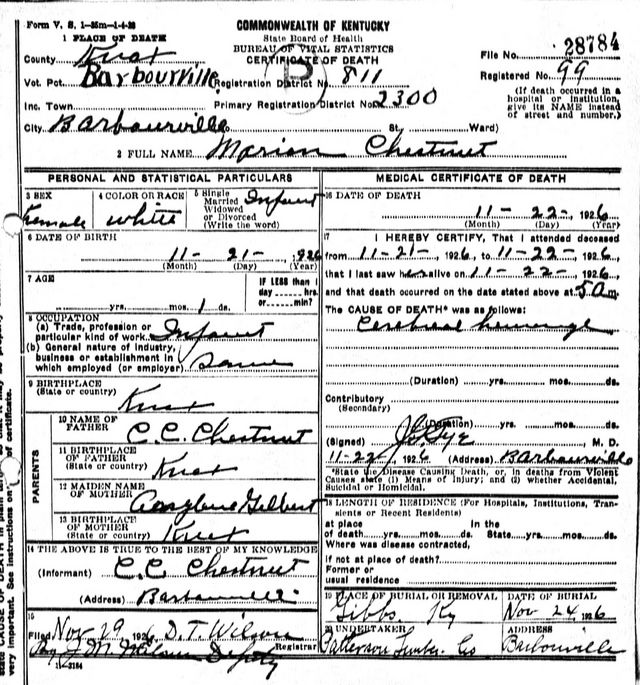 Form V. S. 1-35m-1-4-26
COMMONWEALTH OF KENTUCKY
State Board of Health
BUREAU OF VITAL STATISTICS
CERTIFICATE OF DEATH
1 PLACE OF DEATH
File No. 28784
County Knox
Vot. Pct. Barbourville Registration District No. 811 Registered No. 99
Inc. Town Primary Registration District No. 2300
(If death occurred in a hospital or institution, give its NAME instead of street and number.)
City Barbourville St. Ward)
2 FULL NAME Marion Chestnut
PERSONAL AND STATISTICAL PARTICULARS
3 SEX Female
4 COLOR OR RACE White
5 Single Married Widowed or Divorced (Write the word) Infant
6 DATE OF BIRTH
11- 21-, 1926
(Month) (Day) (Year)
7 AGE
yrs. mos. 1 ds.
IF LESS than 1 day hrs. or min?
8 OCCUPATION
(a) Trade, profession or particular kind of work Infant
(b) General nature of industry, business or establishment in which employed (or employer) Same
9 BIRTHPLACE
(State or country) Knox
PARENTS
10 NAME OF FATHER C. C. Chestnut
11 BIRTHPLACE OF FATHER (State or country) Knox
12 MAIDEN NAME OF MOTHER Gilbert
13 BIRTHPLACE OF MOTHER (State or country) Knox
14 THE ABOVE IS TRUE TO THE BEST OF MY KNOWLEDGE
(Informant) C. C. Chestnut
(Address) Barbourville
15
Filed Nov 29 1926 D. T. Wilson
Registrar
By J M Wilson Deputy
MEDICAL CERTIFICATE OF DEATH
16 DATE OF DEATH
11-22-, 1926
(Month) (Day) (Year)
17 I HEREBY CERTIFY, That I attended deceased
from 11-21-, 1926, to 11-22-, 1926,
that I last saw her alive on 11-22-, 1926
and that death occurred on the date stated above at 5 am.
The CAUSE OF DEATH* was as follows:
Cerebral
(Duration) yrs. mos. ds.
Contributory
(Secondary)
(Duration) yrs. mos. ds.
(Signed) M. D.
11-22, 1926 (Address) Barbourville
*State the Disease Causing Death, or, in deaths from Violent
Causes state (1) Means of Injury; and (2) whether Accidental,
Suicidal or Homicidal.
18 LENGTH OF RESIDENCE (For Hospitals, Institutions, Transients or Recent Residents)
at place of death yrs. mos. ds. In the State yrs. mos. ds.
Where was disease contracted,
If not at place of death?
Former or
usual residence
19 PLACE OF BURIAL OR REMOVAL Gibbs Ky
DATE OF BURIAL Nov 24, 1926
20 UNDERTAKER Patterson Co
ADDRESS Barbourville